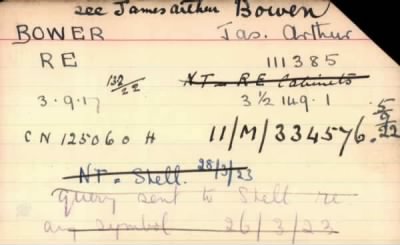 see James Arthur Bowen
BOWER Jas. Arthur
RE 111385
132/22 NT - RE Cabinets
3.9.17 3½ 149.1
CN 125060 H 11/M/334576. 5/9/22
NT = Shell. 28/3/23
query sent to Shell re
any symbol 26/3/23